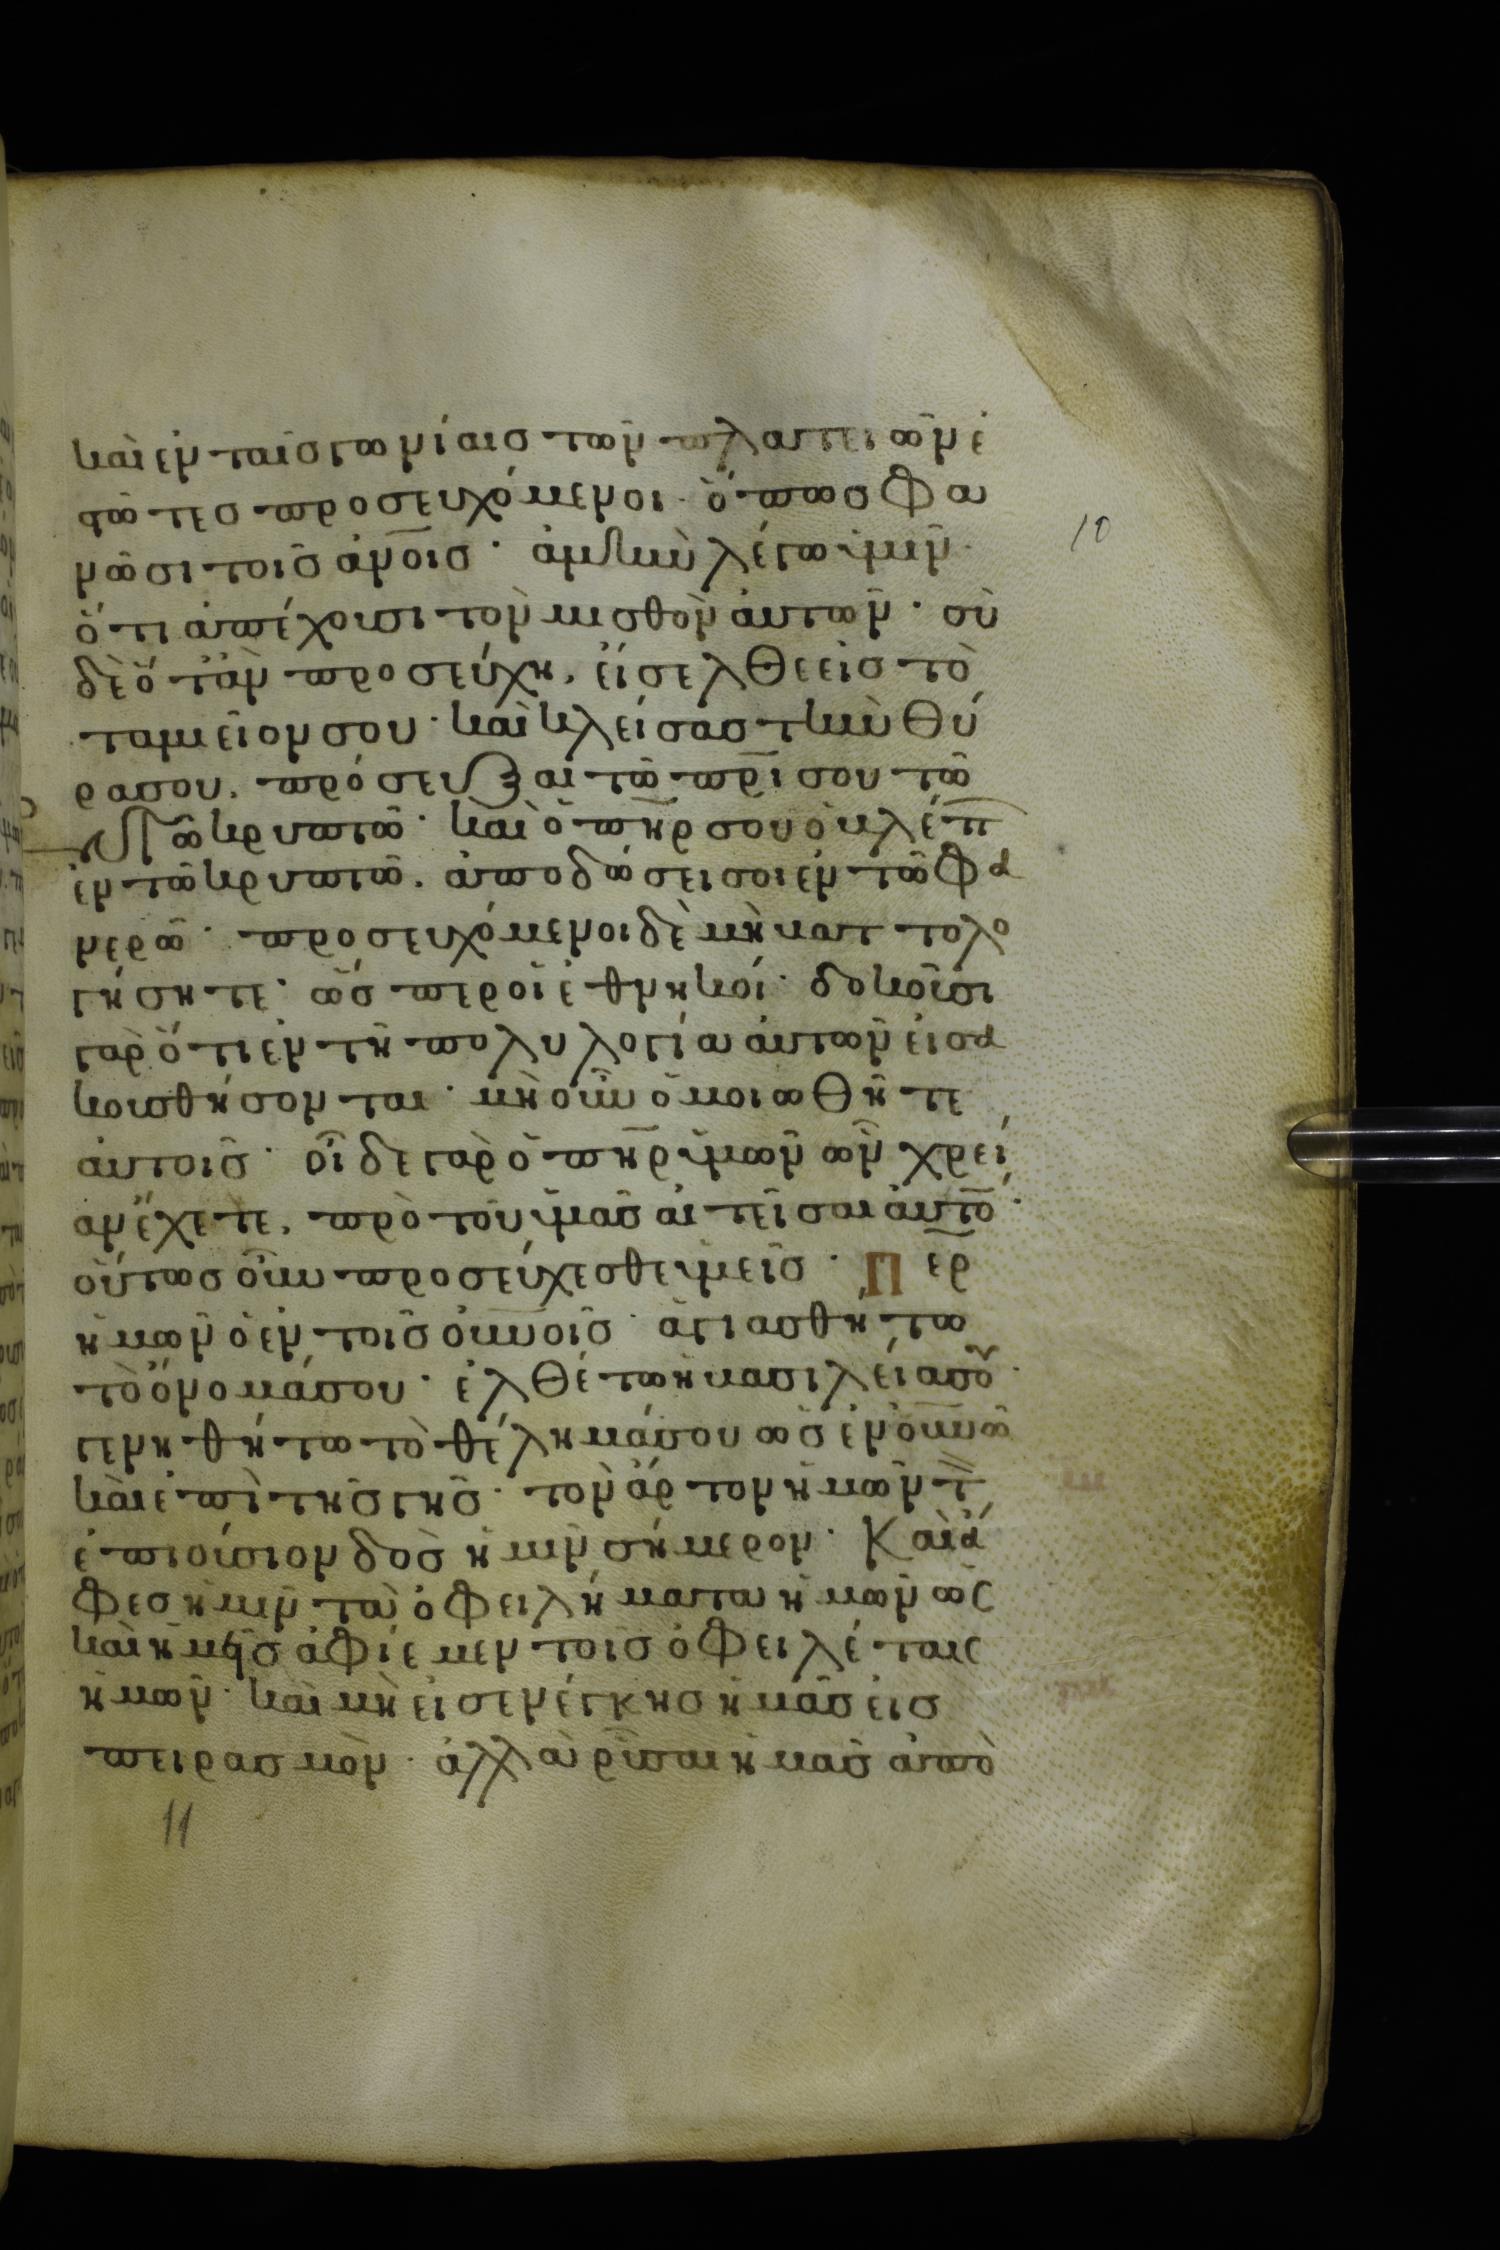 καὶ ἐν ταῖς γωνίαις τῶν πλατειῶν ἑ
στῶτες προσευχόμενοι· ὅπως φα
νῶσι τοῖς ἀνοις· ἀμὴν λέγω ὑμῖν·
ὅτι ἀπέχουσι τὸν μισθὸν αὐτῶν· σὺ
δὲ ὅταν προσεύχη, εἴσελθε εἰς τὸ
ταμιεῖον σου· καὶ κλείσας τὴν θύ
ρα σου, πρόσευξαι τῶ πρι σου τῶ
ἐν τῶ κρυπτῶ· καὶ ὁ πηρ σου ὁ βλέπ
ἐν τῶ κρυπτῶ, ἀποδώσει σοι ἐν τῶ φα
νερῶ· προσευχόμενοι δὲ μὴ βαττολο
γήσητε· ὥσπερ οἱ ἐθνηκοί· δοκοῦσι
γὰρ ὅτι ἐν τῆ πολυλογία αὐτῶν εἰσα
κουσθήσονται· μὴ οὖν ὁμοιωθῆτε
αὐτοῖς· οἶδε γὰρ ὁ πηρ ὑμῶν ὧν χρεί
αν ἔχετε, πρὸ τοῦ ὑμᾶς αἰτεῖσαι αὐτό·
οὕτως οὖν προσεύχεσθε ὑμεῖς· Περ
ἡμῶν ὁ ἐν τοῖς οὐνοῖς· ἁγιασθήτω
τὸ ὄνομά σου· ἐλθέτω ἡ βασιλεία σου·
γενηθήτω τὸ θέλημά σου ὡς ἐν οὐνῶ
καὶ ἐπὶ τῆς γῆς· τὸν ἄρτον ἡμῶν τ
ἐπιούσιον δὸς ἡμῖν σήμερον· Καὶ ἄ
φες ἡμῖν τὰ ὀφειλήματα ἡμῶν ὡς
καὶ ἡμεῖς ἀφίεμεν τοῖς ὀφειλέταις
ἡμῶν· καὶ μὴ εἰσενέγκης ἡμᾶς εἰς
πειρασμὸν· ἀλλὰ ρῦσαι ἡμᾶς ἀπὸ
10
11